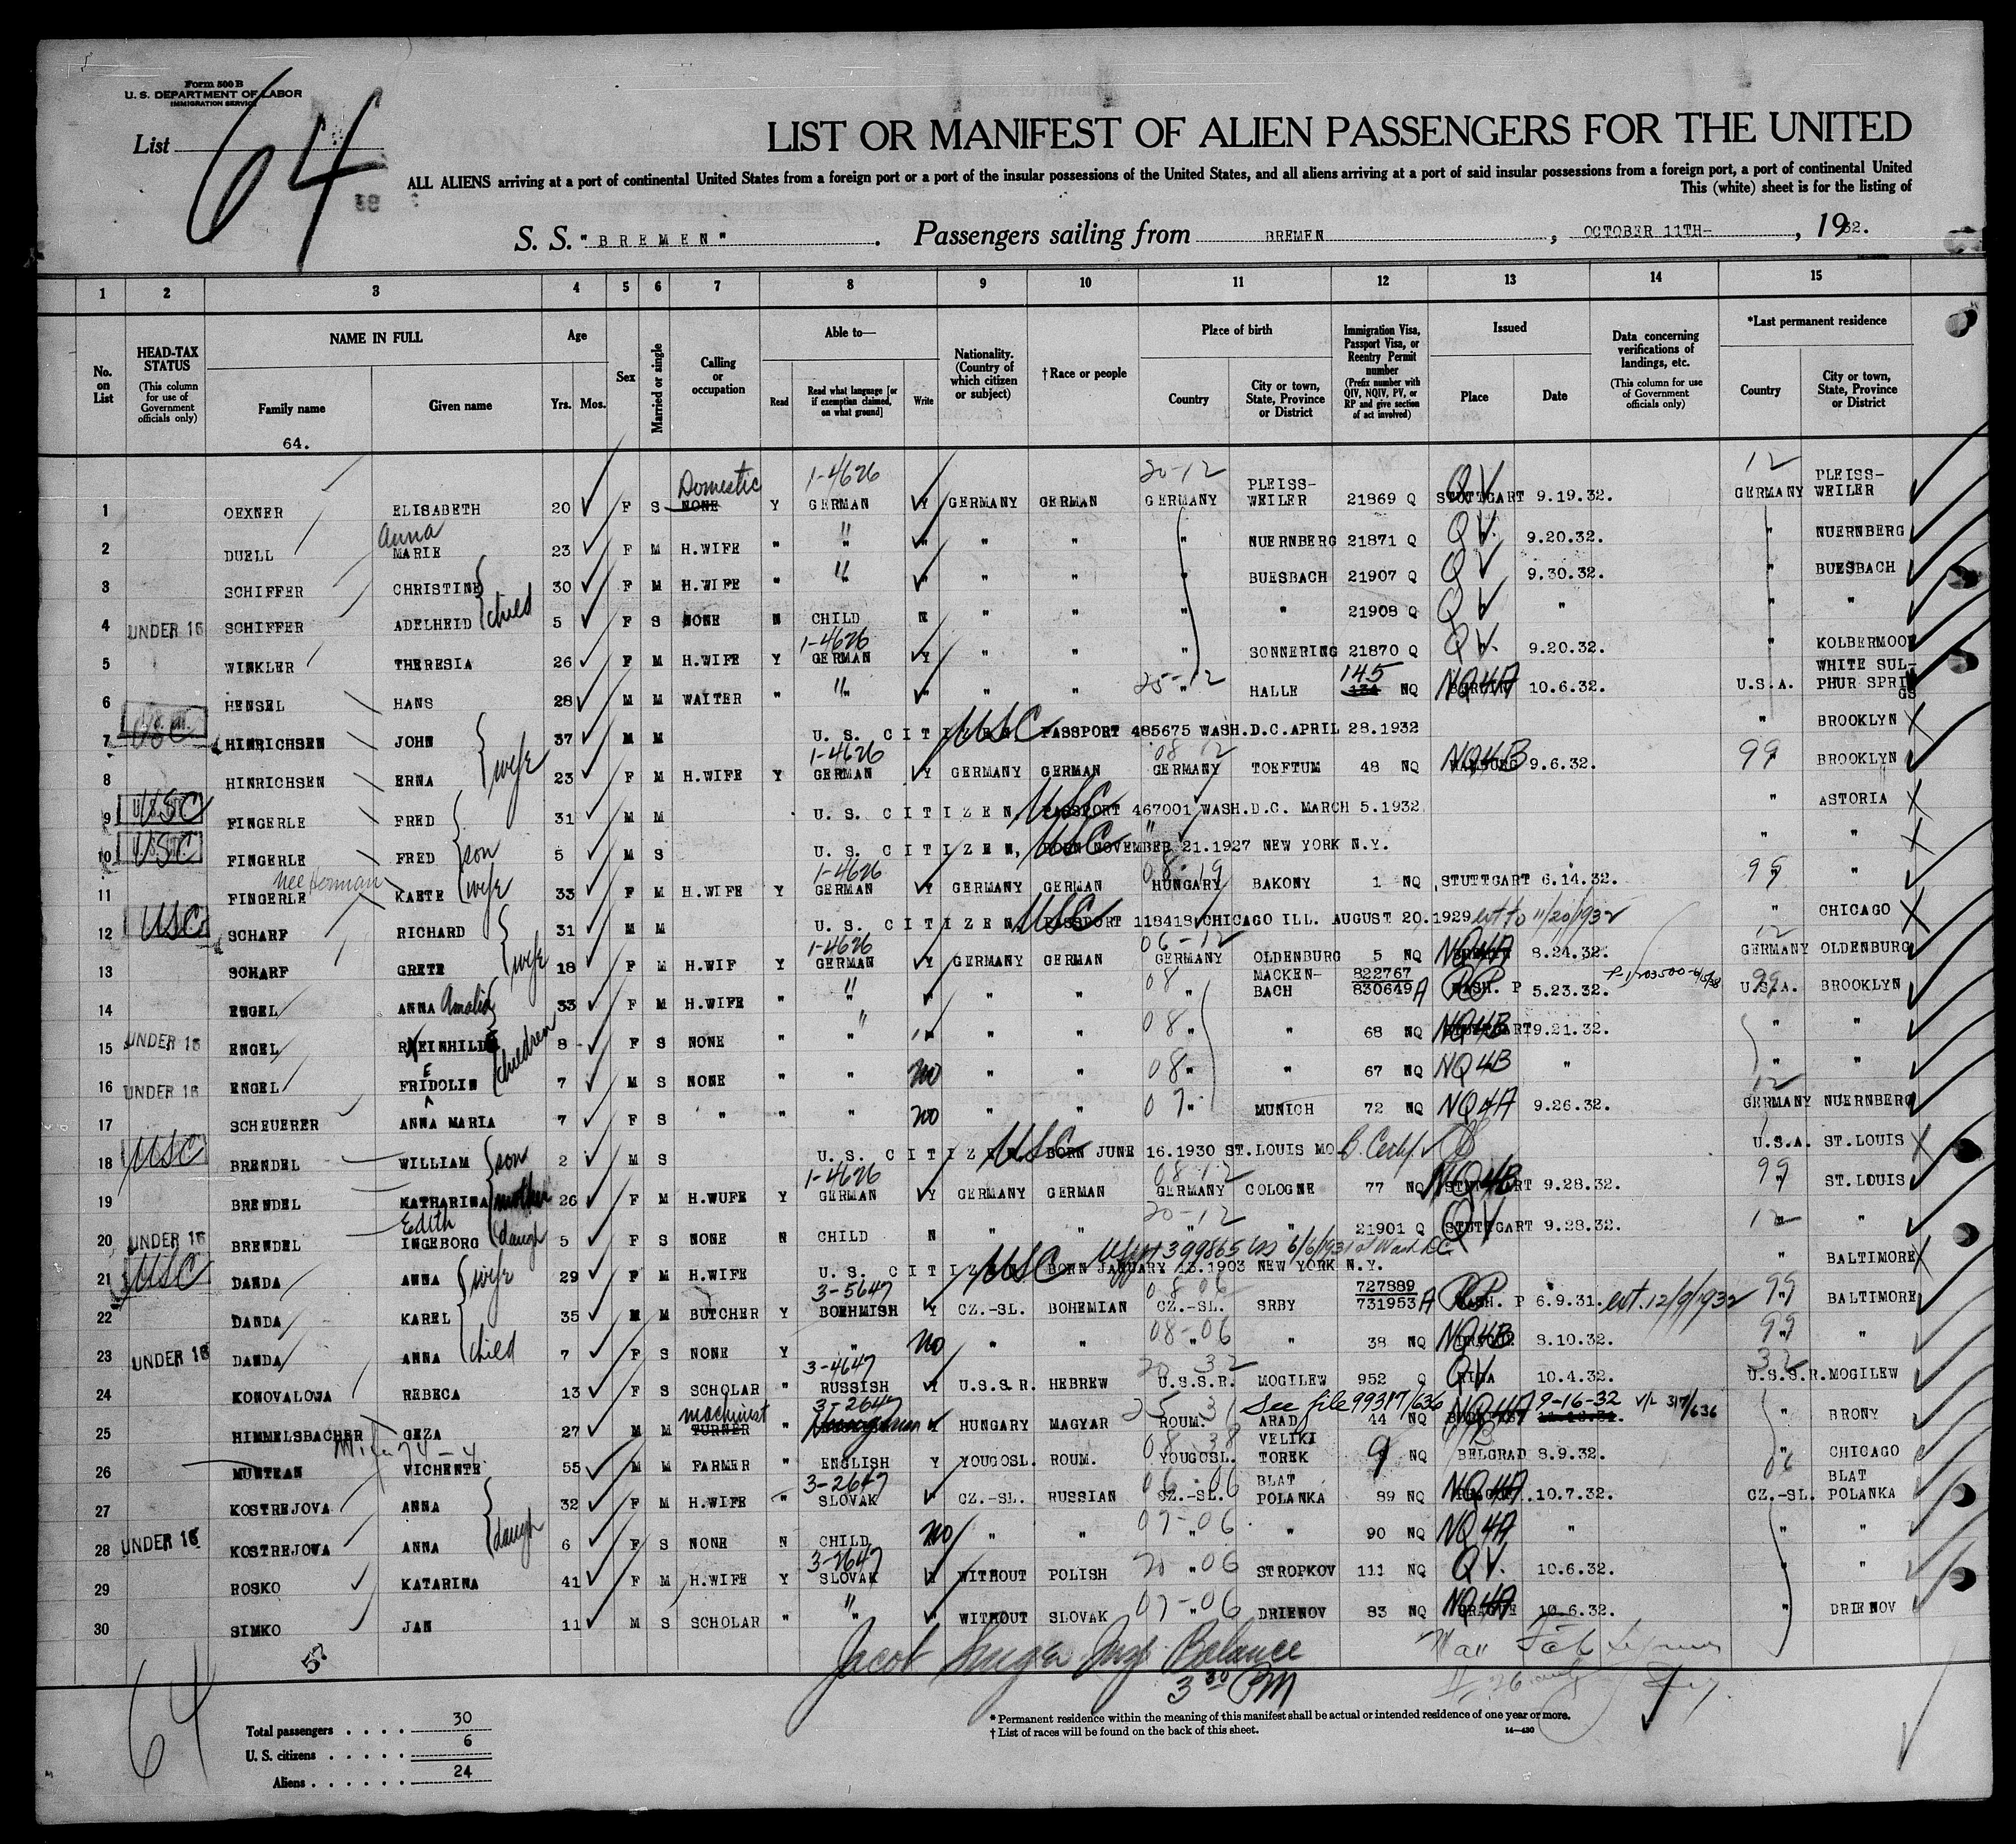 Form 500 B
U. S. DEPARTMENT OF LABOR
IMMIGRATION SERVICE
List 64
LIST OR MANIFEST OF ALIEN PASSENGERS FOR THE UNITED
ALL ALIENS arriving at a port of continental United States from a foreign port or a port of the insular possessions of the United States, and all aliens arriving at a port of said insular possessions from a foreign port, a port of continental United
This (white) sheet is for the listing of
S. S. "BREMEN" . Passengers sailing from BREMEN , OCTOBER 11TH- , 1932.
1 2 3 4 5 6 7 8 9 10 11 12 13 14 15
No. on List
HEAD-TAX STATUS (This column for use of Government officials only)
NAME IN FULL
Family name Given name
Age
Yrs. Mos.
Sex
Married or single
Calling or occupation
Able to—
Read Read what language [or if exemption claimed, on what ground] Write
Nationality. (Country of which citizen or subject)
† Race or people
Place of birth
Country City or town, State, Province or District
Immigration Visa, Passport Visa, or Reentry Permit number (Prefix number with QIV, NQIV, PV, or RP and give section of act involved)
Issued
Place Date
Data concerning verifications of landings, etc. (This column for use of Government officials only)
*Last permanent residence
Country City or town, State, Province or District
64.
Domestic 1-4626 20-12 QV 12
1 OEXNER ELISABETH 20 F S NONE Y GERMAN Y GERMANY GERMAN GERMANY PLEISS-WEILER 21869 Q STUTTGART 9.19.32. GERMANY PLEISS-WEILER
Anna
2 DUELL MARIE 23 F M H.WIFE " " " " " " NUERNBERG 21871 Q QV. 9.20.32. " NUERNBERG
3 SCHIFFER CHRISTINE 30 F M H.WIFE " " " " " " BUESBACH 21907 Q QV 9.30.32. " BUESBACH
child
4 UNDER 16 SCHIFFER ADELHEID 5 F S NONE N CHILD N " " " " 21908 Q QV " " "
1-4626
5 WINKLER THERESIA 26 F M H.WIFE Y GERMAN Y " " " SONNERING 21870 Q QV. 9.20.32. " KOLBERMOOR
25-12 145
6 HENSEL HANS 28 M M WAITER " " " " " " HALLE 134 NQ NQ4A BERLIN 10.6.32. U.S.A. WHITE SUL-PHUR SPRINGS
7 USC HINRICHSEN JOHN 37 M M U. S. CITIZEN, USC PASSPORT 485675 WASH.D.C.APRIL 28.1932 " BROOKLYN
wife 1-4626 08 12 99
8 HINRICHSEN ERNA 23 F M H.WIFE Y GERMAN Y GERMANY GERMAN GERMANY TOEFTUM 48 NQ NQ4B HAMBURG 9.6.32. " BROOKLYN
9 USC FINGERLE FRED 31 M M U. S. CITIZEN, USC PASSPORT 467001 WASH.D.C. MARCH 5.1932 " ASTORIA
10 USC FINGERLE FRED son 5 M S U. S. CITIZEN, USC BORN NOVEMBER 21.1927 NEW YORK N.Y. " "
nee Herman wife 1-4626 08-19 99
11 FINGERLE KAETE 33 F M H.WIFE Y GERMAN Y GERMANY GERMAN HUNGARY BAKONY 1 NQ STUTTGART 6.14.32. " "
12 USC SCHARF RICHARD 31 M M U. S. CITIZEN, USC PASSPORT 118418 CHICAGO ILL. AUGUST 20.1929 ext to 11/20/1932 " CHICAGO
wife 1-4626 06-12 12
13 SCHARF GRETE 18 F M H.WIF Y GERMAN Y GERMANY GERMAN GERMANY OLDENBURG 5 NQ NQ4A 8.24.32. GERMANY OLDENBURG
08 822767 99
14 ENGEL ANNA Amalia 33 F M H.WIFE " " " " " " MACKEN-BACH 830649 A RP WASH. P 5.23.32. U.S.A. BROOKLYN
children
15 UNDER 16 ENGEL REINHILDE 8 F S NONE " " " " " 08 " " 68 NQ NQ4B STUTTGART 9.21.32. " "
16 UNDER 16 ENGEL FRIEDOLIN 7 M S NONE " " no " " 08 " " 67 NQ NQ4B " " "
17 SCHEUERER ANNA MARIA 7 F S " " " no " " 07 " MUNICH 72 NQ NQ4A 9.26.32. 12 GERMANY NUERNBERG
18 USC BRENDEL WILLIAM son 2 M S U. S. CITIZEN, USC BORN JUNE 16.1930 ST.LOUIS MO B. Certif. U.S.A. ST.LOUIS
1-4626 08-12 99
19 BRENDEL KATHARINA mother 26 F M H.WUFE Y GERMAN Y GERMANY GERMAN GERMANY COLOGNE 77 NQ NQ4B STUTTGART 9.28.32. " ST.LOUIS
Edith 20-12 12
20 UNDER 16 BRENDEL INGEBORG daugh 5 F S NONE N CHILD N " " " " 21901 Q QV STUTTGART 9.28.32. " "
399865 6/6/1931 Wash DC
21 USC DANDA ANNA wife 29 F M H.WIFE U. S. CITIZEN, USC BORN JANUARY 13.1903 NEW YORK N.Y. " BALTIMORE
3-5647 08 06 727889 99
22 DANDA KAREL 35 M M BUTCHER Y BOEHMISH Y CZ.-SL. BOHEMIAN CZ.-SL. SRBY 731953 A RP WASH. P 6.9.31. ext. 12/9/1932 " BALTIMORE
23 UNDER 16 DANDA ANNA child 7 F S NONE Y " no " " 08-06 " " 38 NQ NQ4B PRAGUE 8.10.32. 99 " "
3-4647 20 32 32
24 KONOVALOWA REBECA 13 F S SCHOLAR " RUSSISH Y U.S.S.R. HEBREW U.S.S.R. MOGILEW 952 Q QV RIGA 10.4.32. U.S.S.R. MOGILEW
machinist 3-2647 25 31 See file 99317/636 9-16-32 V/L 317/636
25 HIMMELSBACHER GEZA 27 M M TURNER " Hungarian Y HUNGARY MAGYAR ROUM. ARAD 44 NQ NQ4A BUDAPEST " BRONY
08 38
26 MUNTEAN VICHENTE 55 M M FARMER " ENGLISH Y YOUGOSL. ROUM. YOUGOSL. VELIKI TOREK 9 NQ BELGRAD 8.9.32. " CHICAGO
3-2647 06-06 06
27 KOSTREJOVA ANNA 32 F M H.WIFE " SLOVAK " CZ.-SL. RUSSIAN CZ.-SL. BLAT POLANKA 89 NQ NQ4A 10.7.32. CZ.-SL. BLAT POLANKA
28 UNDER 16 KOSTREJOWA ANNA daugh 6 F S NONE N CHILD no " " 07-06 " " 90 NQ NQ4A " " "
3-2647
29 ROSKO KATARINA 41 F M H.WIFE Y SLOVAK Y WITHOUT POLISH 20 " 06 STROPKOV 111 NQ QV. 10.6.32. " "
30 SIMKO JAN 11 M S SCHOLAR " " " WITHOUT SLOVAK 07-06 " DRIENOV 83 NQ NQ4A PRAGUE 10.6.32. " DRIENOV
57
Jacob Insp. Balance
3 30 PM
64
Total passengers . . . . 30
U. S. citizens . . . . . 6
Aliens . . . . . . 24
* Permanent residence within the meaning of this manifest shall be actual or intended residence of one year or more.
† List of races will be found on the back of this sheet.
14—430